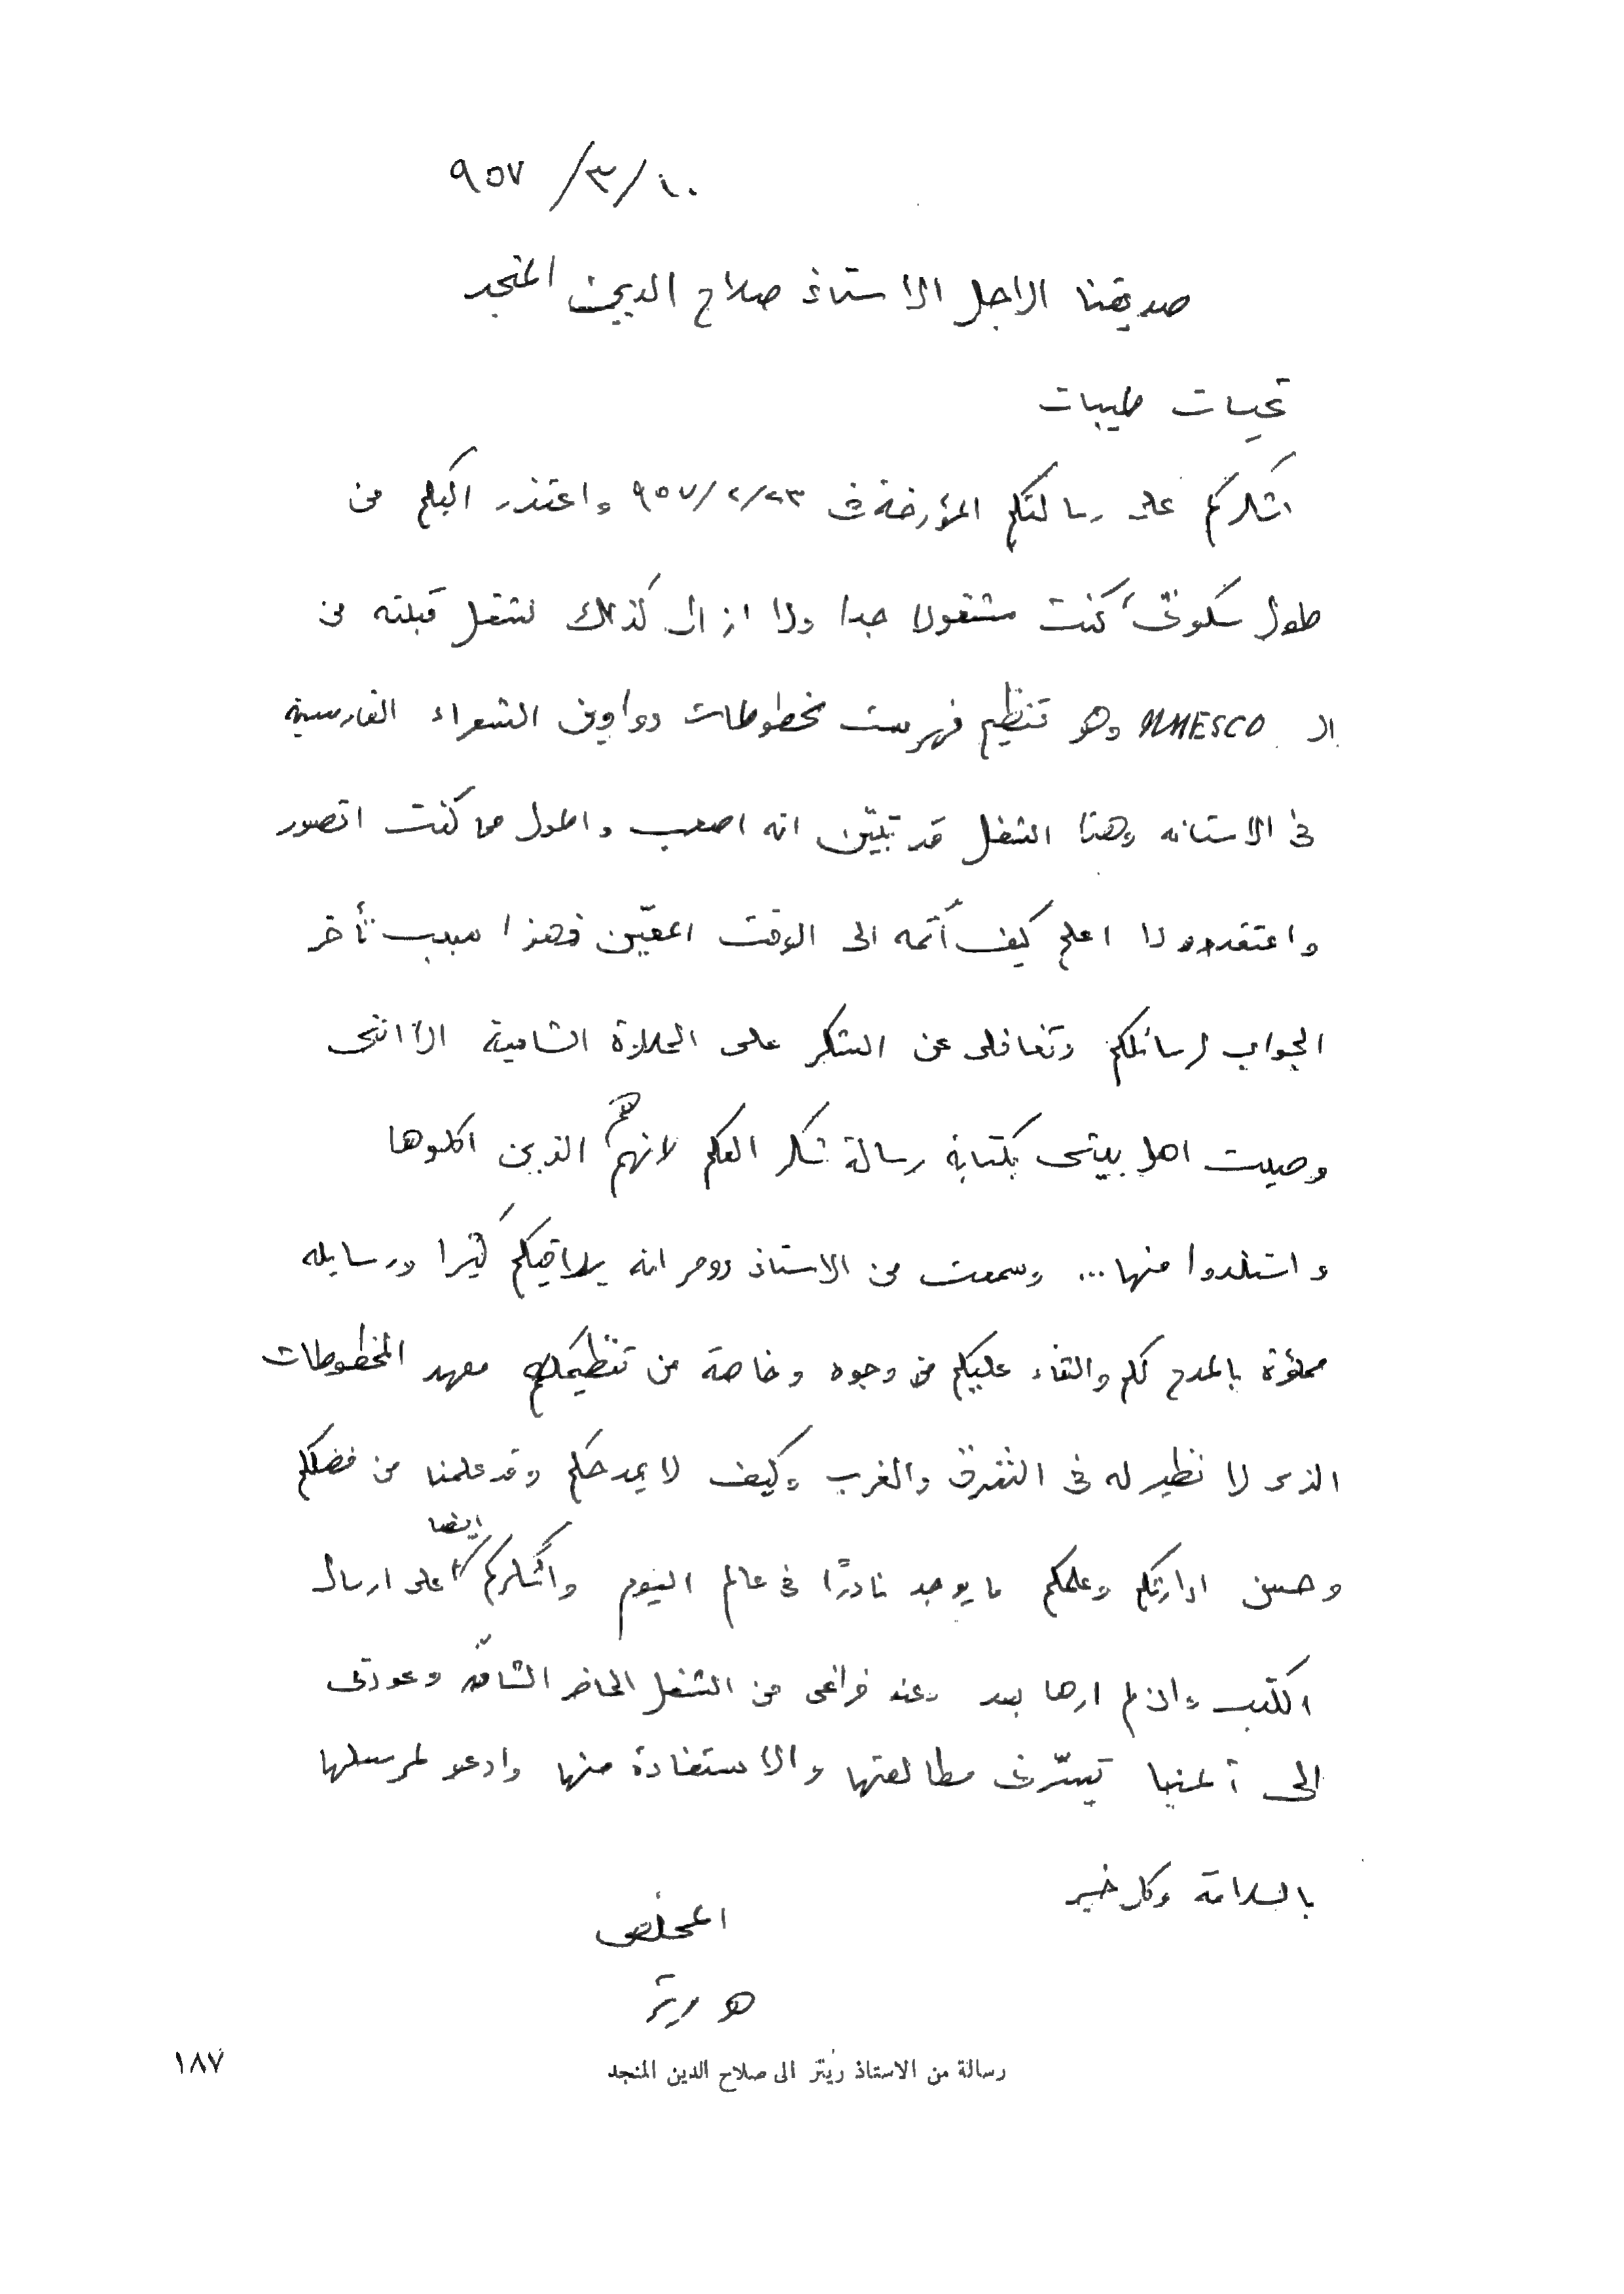 ١٠/٣/ ٩٥٧
صديقنا الاجل الاستاذ صلاح الدين المنجد
تحيات طيبات
اشكركم على رسالتكم المؤرخة فى ٩٥٧/٢/٢٣ واعتذر اليكم من
طول سكوتى، كنت مشغولا جدا ولا ازال كذلك لشغل قبلته من
الـ UNESCO وهو تنظيم فهرست مخطوطات دواوين الشعراء الفارسية
فى الاستانه وهذا الشغل قد تبيّن انه اصعب واطول مما كنت اتصور
واعتقد ولا اعلم كيف أتمه الى الوقت المعيّن فهذا سبب تأخر
الجواب لرسائلكم وتغافلى عن الشكر على الحلاوة الشامية الا اننى
وصيت اهل بيتى بكتابة رسالة شكر اليكم لانهم هم الذين اكلوها
واستلذوا منها... وسمعت من الاستاذ رومر انه يلاقيكم كثيرا ورسايله
مملؤة بالمدح لكم والثناء عليكم من وجوه وخاصة من تنظيمكم معهد المخطوطات
الذى لا نظير له فى الشرق والغرب وكيف لا يمدحكم وقد علمنا من فضلكم
وحسن ادارتكم وعلمكم ما يوجد نادرًا فى عالم اليوم واشكركم ايضا على ارسال
الكتب وان لم ارها بعد وعند فراغى من الشغل الحاضر الشاقّ وعودتى
الى المنيا تيسّر لى مطالعتها والاستفادة منها وادعو لمرسلها
بالسلامة وكل خير
المخلص
هـ ريتر
رسالة من الاستاذ ريتر الى صلاح الدين المنجد
١٨٧